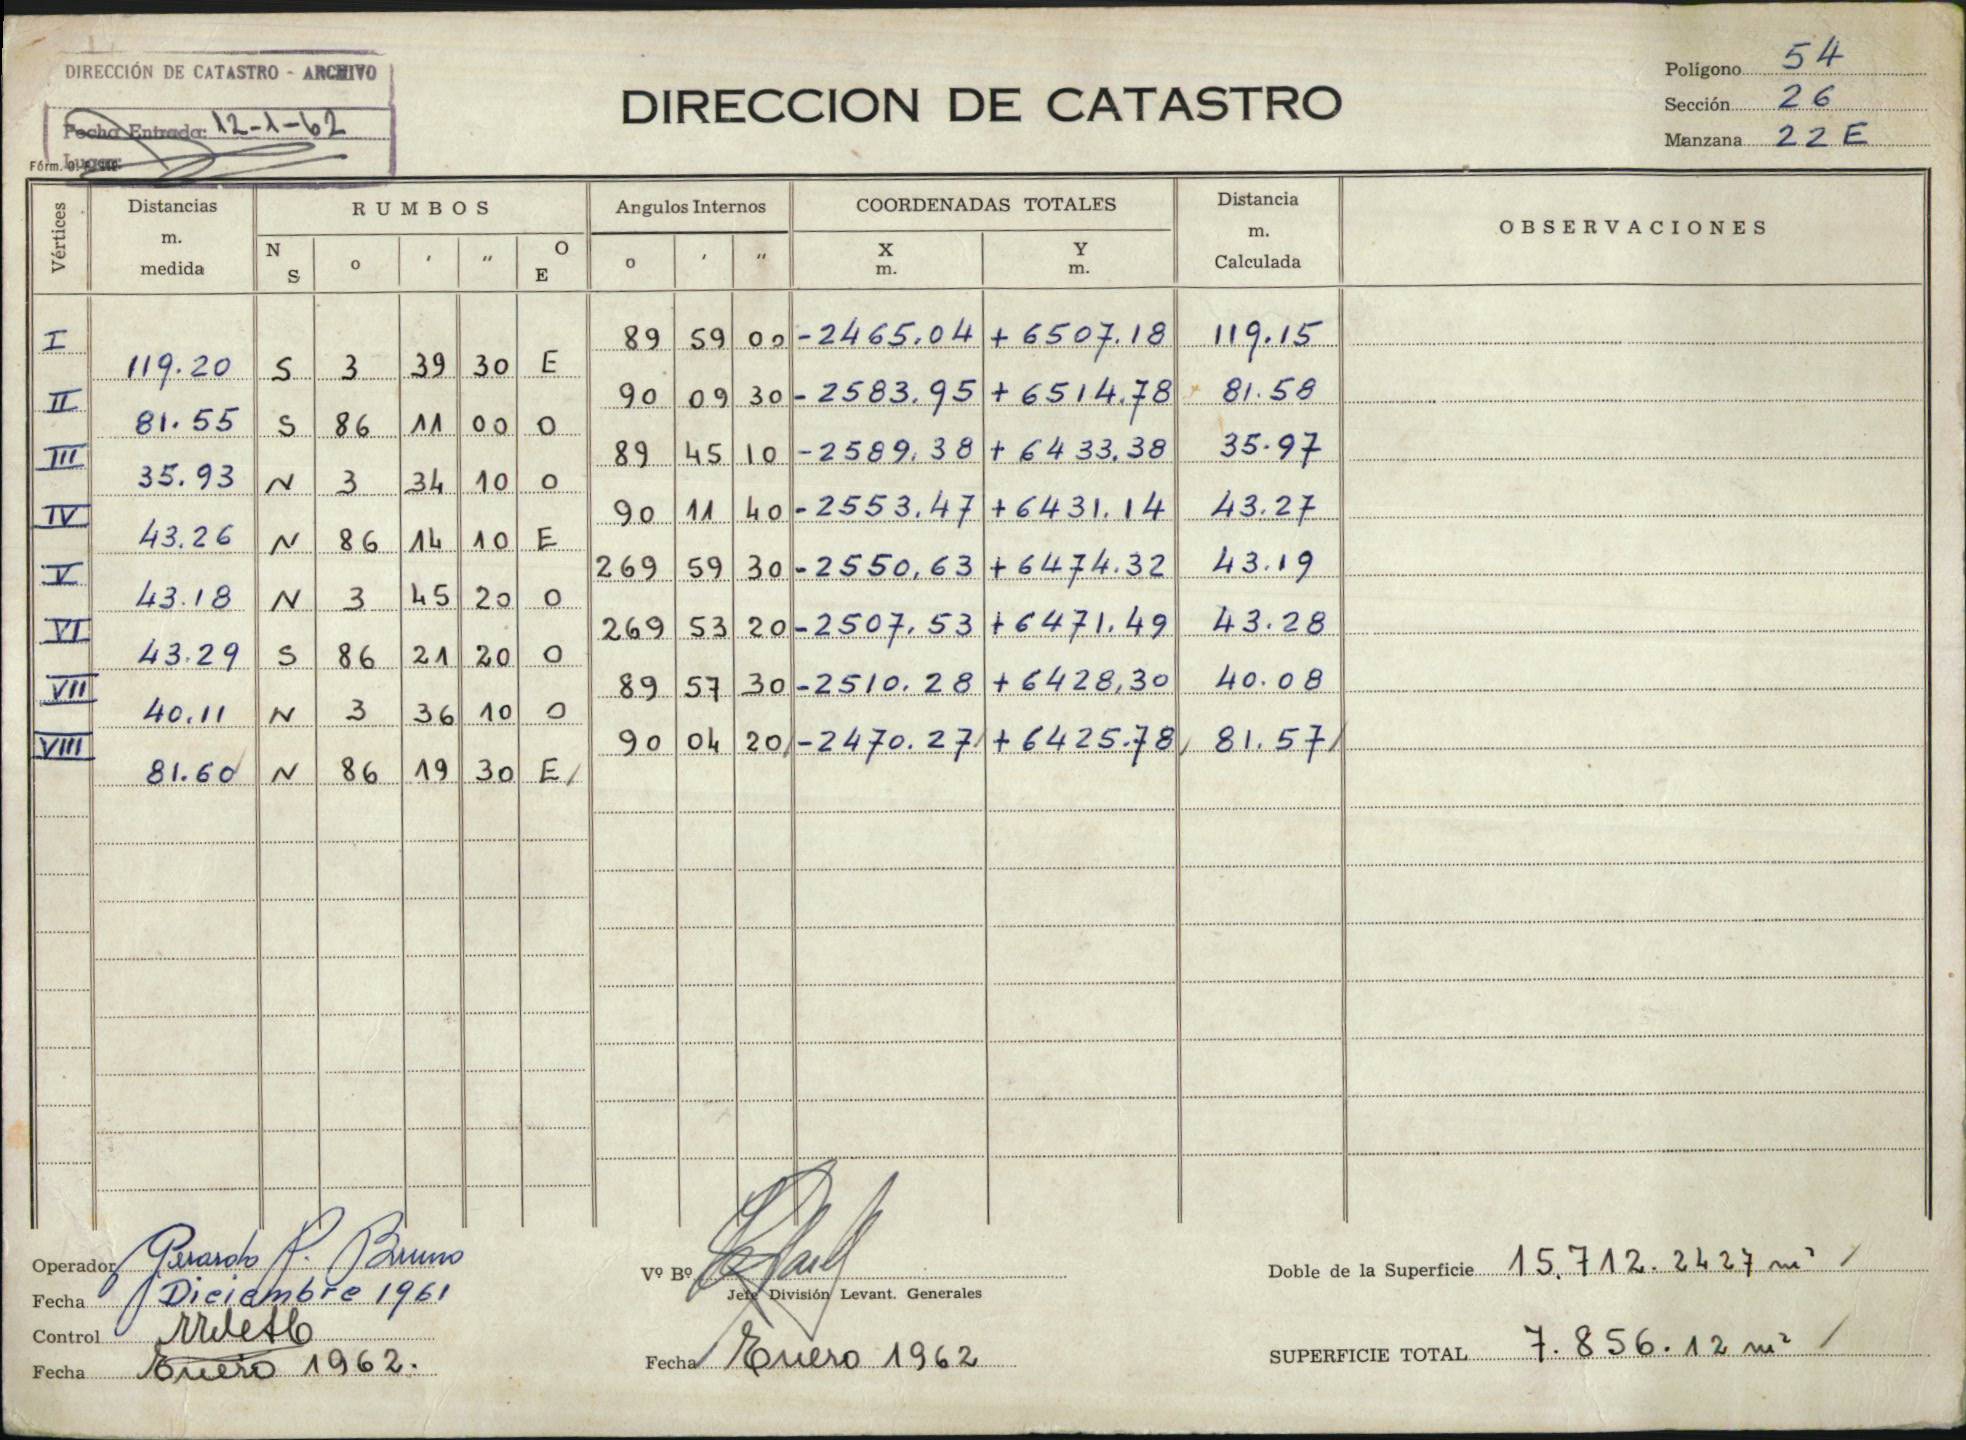 DIRECCIÓN DE CATASTRO - ARCHIVO
Fecha Entrada: 12-1-62
Lugar:
Fórm.
DIRECCION DE CATASTRO
Polígono 54
Sección 26
Manzana 22 E
Vértices Distancias m. medida RUMBOS Angulos Internos COORDENADAS TOTALES Distancia m. Calculada OBSERVACIONES
N S o ' " O E o ' " X m. Y m.
I 89 59 00 -2465.04 +6507.18 119.15
119.20 S 3 39 30 E
II 90 09 30 -2583.95 +6514.78 81.58
81.55 S 86 11 00 O
III 89 45 10 -2589.38 +6433.38 35.97
35.93 N 3 34 10 O
IV 90 11 40 -2553.47 +6431.14 43.27
43.26 N 86 14 10 E
V 269 59 30 -2550,63 +6474.32 43.19
43.18 N 3 45 20 O
VI 269 53 20 -2507.53 +6471.49 43.28
43.29 S 86 21 20 O
VII 89 57 30 -2510.28 +6428,30 40.08
40.11 N 3 36 10 O
VIII 90 04 20 -2470.27 +6425.78 81.57
81.60 N 86 19 30 E
Operador Gerardo P. Bruno
Fecha Diciembre 1961
Control
Fecha Enero 1962.
Vº Bº
Jefe División Levant. Generales
Fecha Enero 1962
Doble de la Superficie 15.712.2427 m²
SUPERFICIE TOTAL 7.856.12 m²